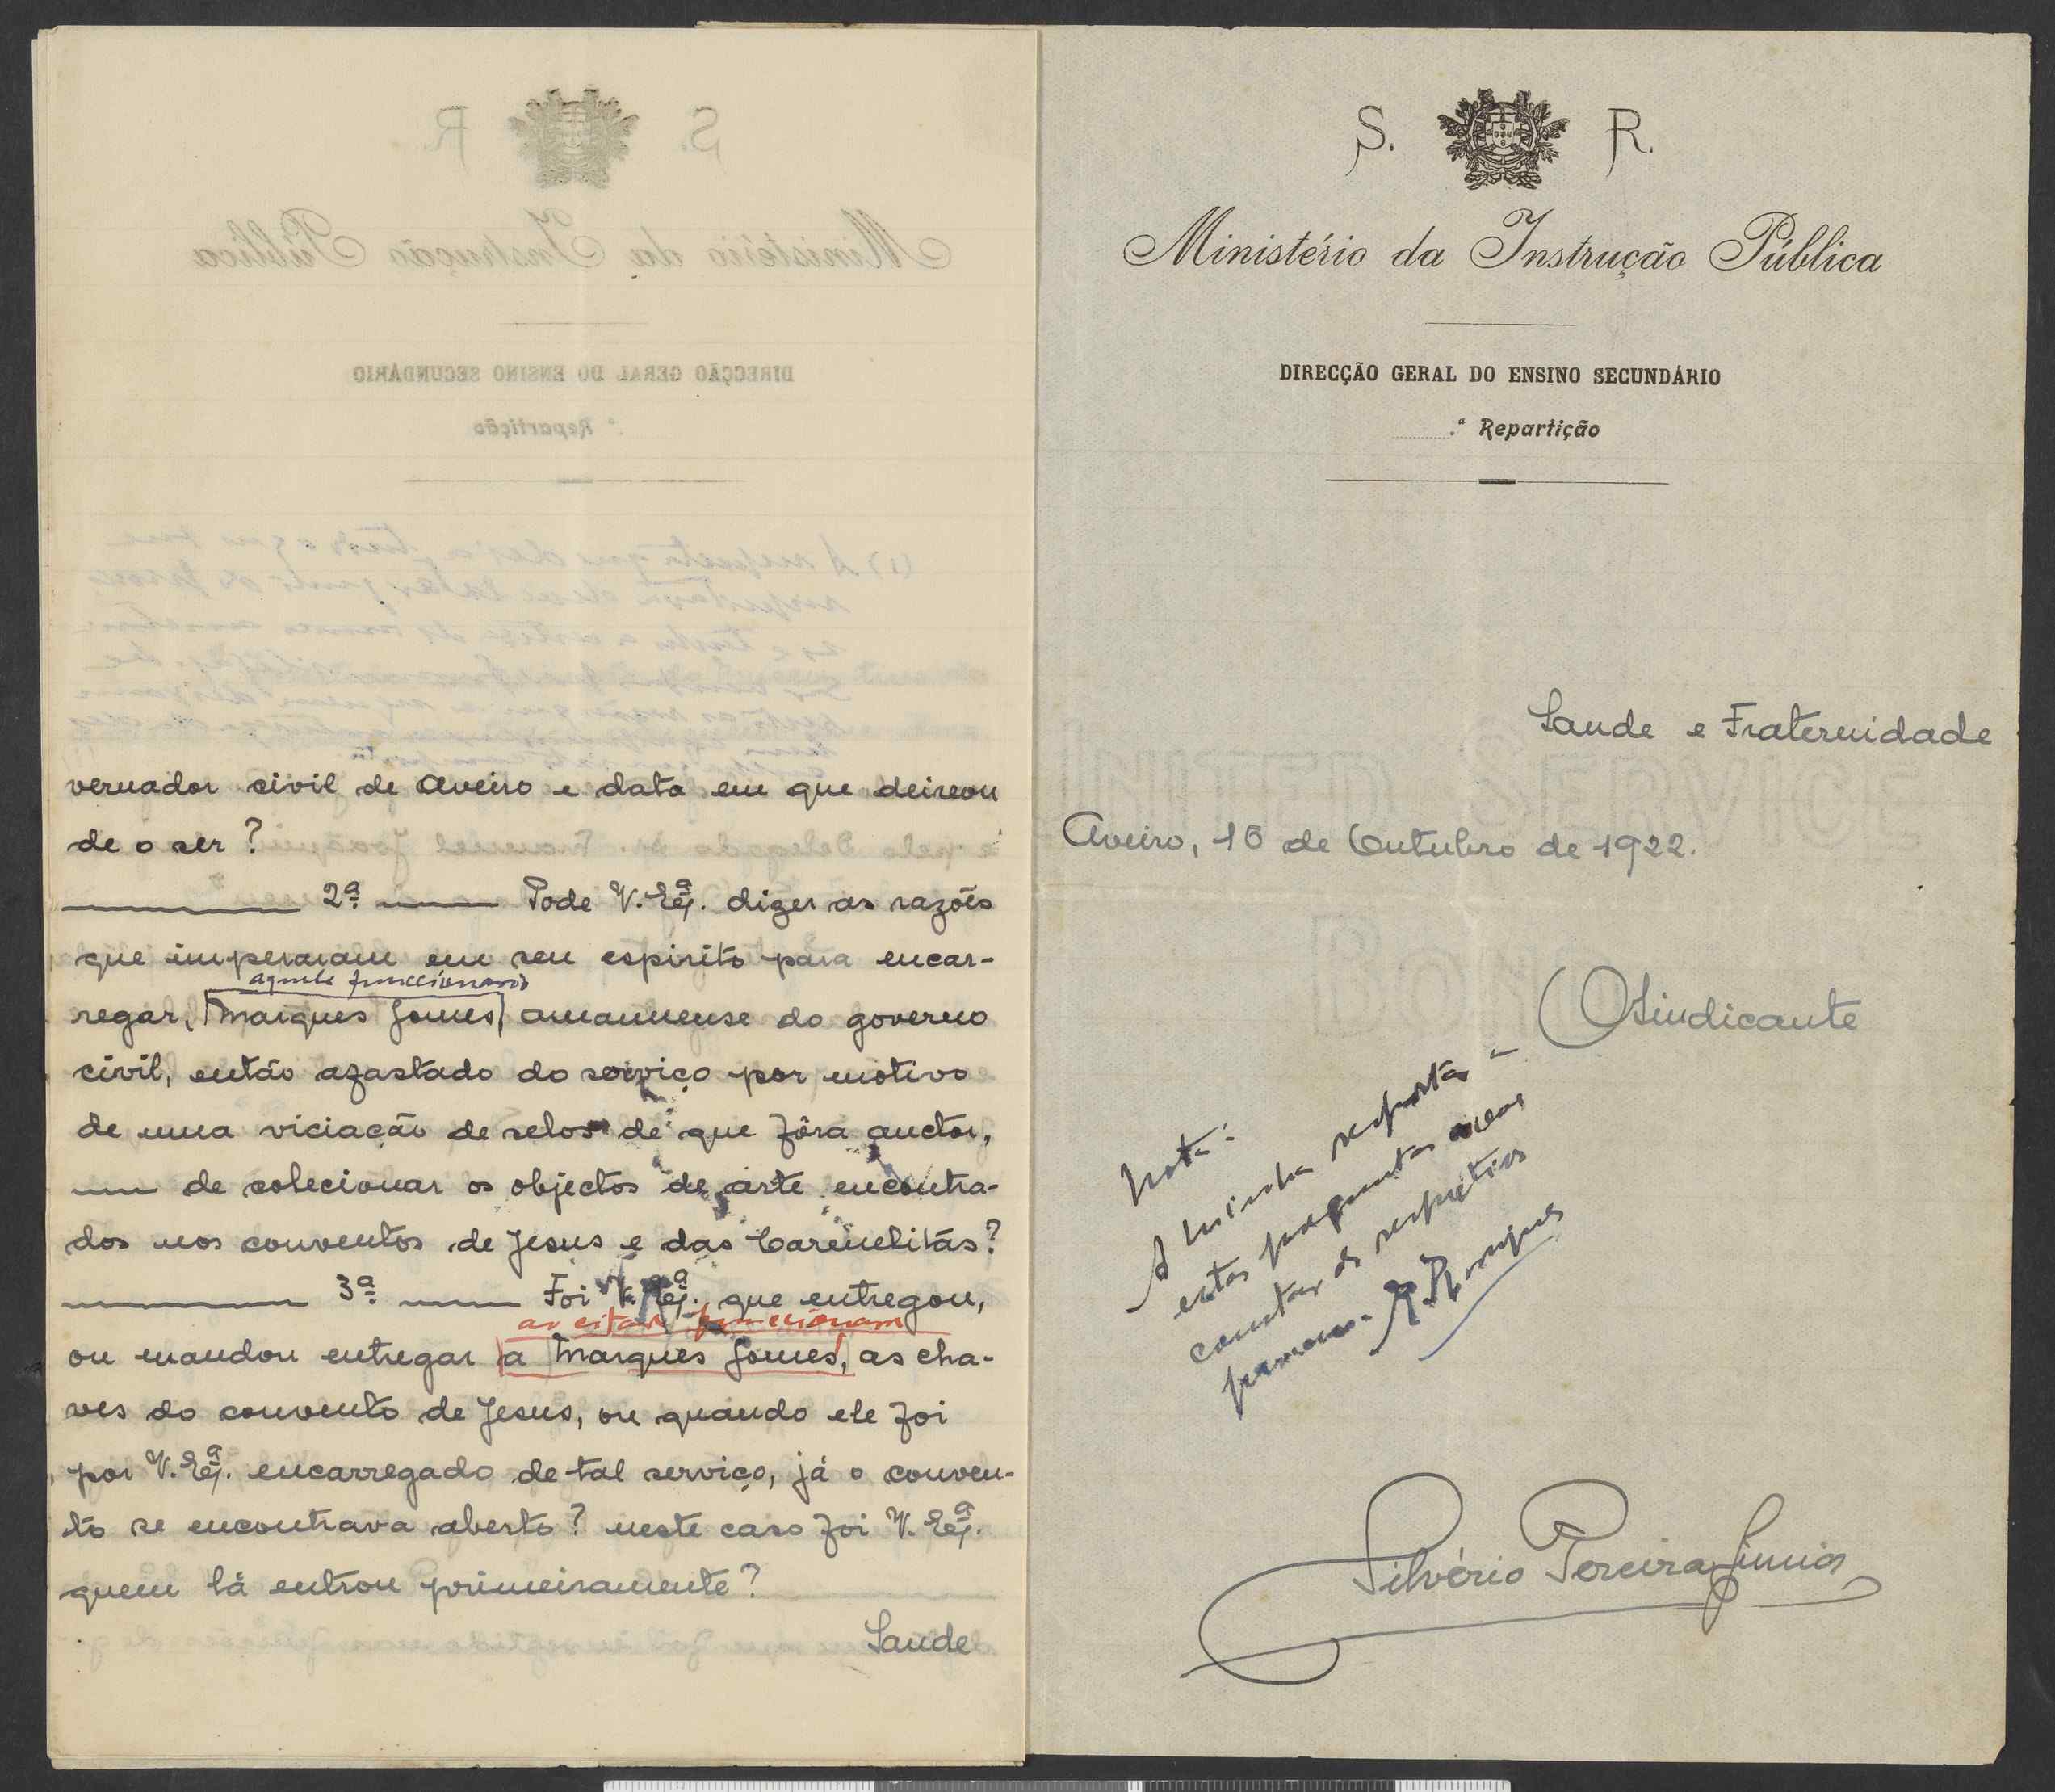 vernador civil de Aveiro e data em que deixou
de o ser?
2ª Pode V. Exª. dizer as razões
que imperaram em seu espirito para encar-
aquele funccionario
regar, Marques Gomes, amanuense do governo
civil, então afastado do serviço por motivo
de uma viciação de selos de que fôra auctor,
de colecionar os objectos de arte encontra-
dos nos conventos de Jesus e das Carmelitas?
3ª Foi V. Exª. que entregou,
ao citado funcionario
ou mandou entregar a Marques Gomes, as cha-
ves do convento de Jesus, ou quando ele foi
por V. Exª. encarregado de tal serviço, já o conven-
to se encontrava aberto? neste caso foi V. Exª.
quem lá entrou primeiramente?
Saude
S. R.
Ministério da Instrução Pública
DIRECÇÃO GERAL DO ENSINO SECUNDÁRIO
.ª Repartição
Saude e Fraternidade
Aveiro, 16 de Outubro de 1922.
O Sindicante
Nota:
A minha resposta a
estas perguntas
constar do respétivo
Silvério Pereira Junior